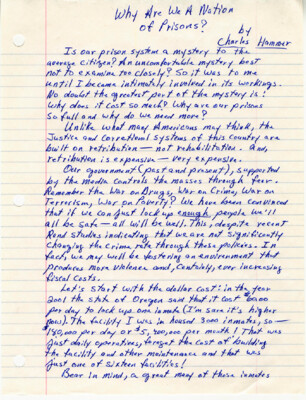 Why Are We A Nation
of Prisons?
by
Charles Hammer
Is our prison system a mystery to the
average citizen? An uncomfortable mystery best
not to examine too closely? So it was to me
until I became intimately involved in its workings.
No doubt the greatest part of the mystery is!
Why does it cost so much? Why are our prisons
so full and why do we need more?
Unlike what many Americans may think, the
Justice and Correctional systems of this country are
built on retribution — not rehabilitation. And
retribution is expensive — very expensive.
Our government (past and present), supported
by the media controls the masses through fear.
Remember the War on Drugs, War on Crime, War on
Terrorism, War on Poverty? We have been convinced
that if we can just lock up enough people we'll
all be safe — all will be well. This, despite recent
Rand Studies indicating that we are not significantly
changing the crime rate through these policies. In
fact, we may well be fostering an environment that
produces more violence and, certainly, ever increasing
fiscal costs.
Let's start with the dollar cost: in the year
2001 the state of Oregon said that it cost $60.00
per day to lock up one inmate (I'm sure it's higher
now). The facility I was in housed 3000 inmates, so —
$180,000 per day or $5,400,000 per month! That was
just daily operations, forget the cost of building
the facility and other maintenance and that was
just one of sixteen facilities!
Bear in mind, a great many of those inmates